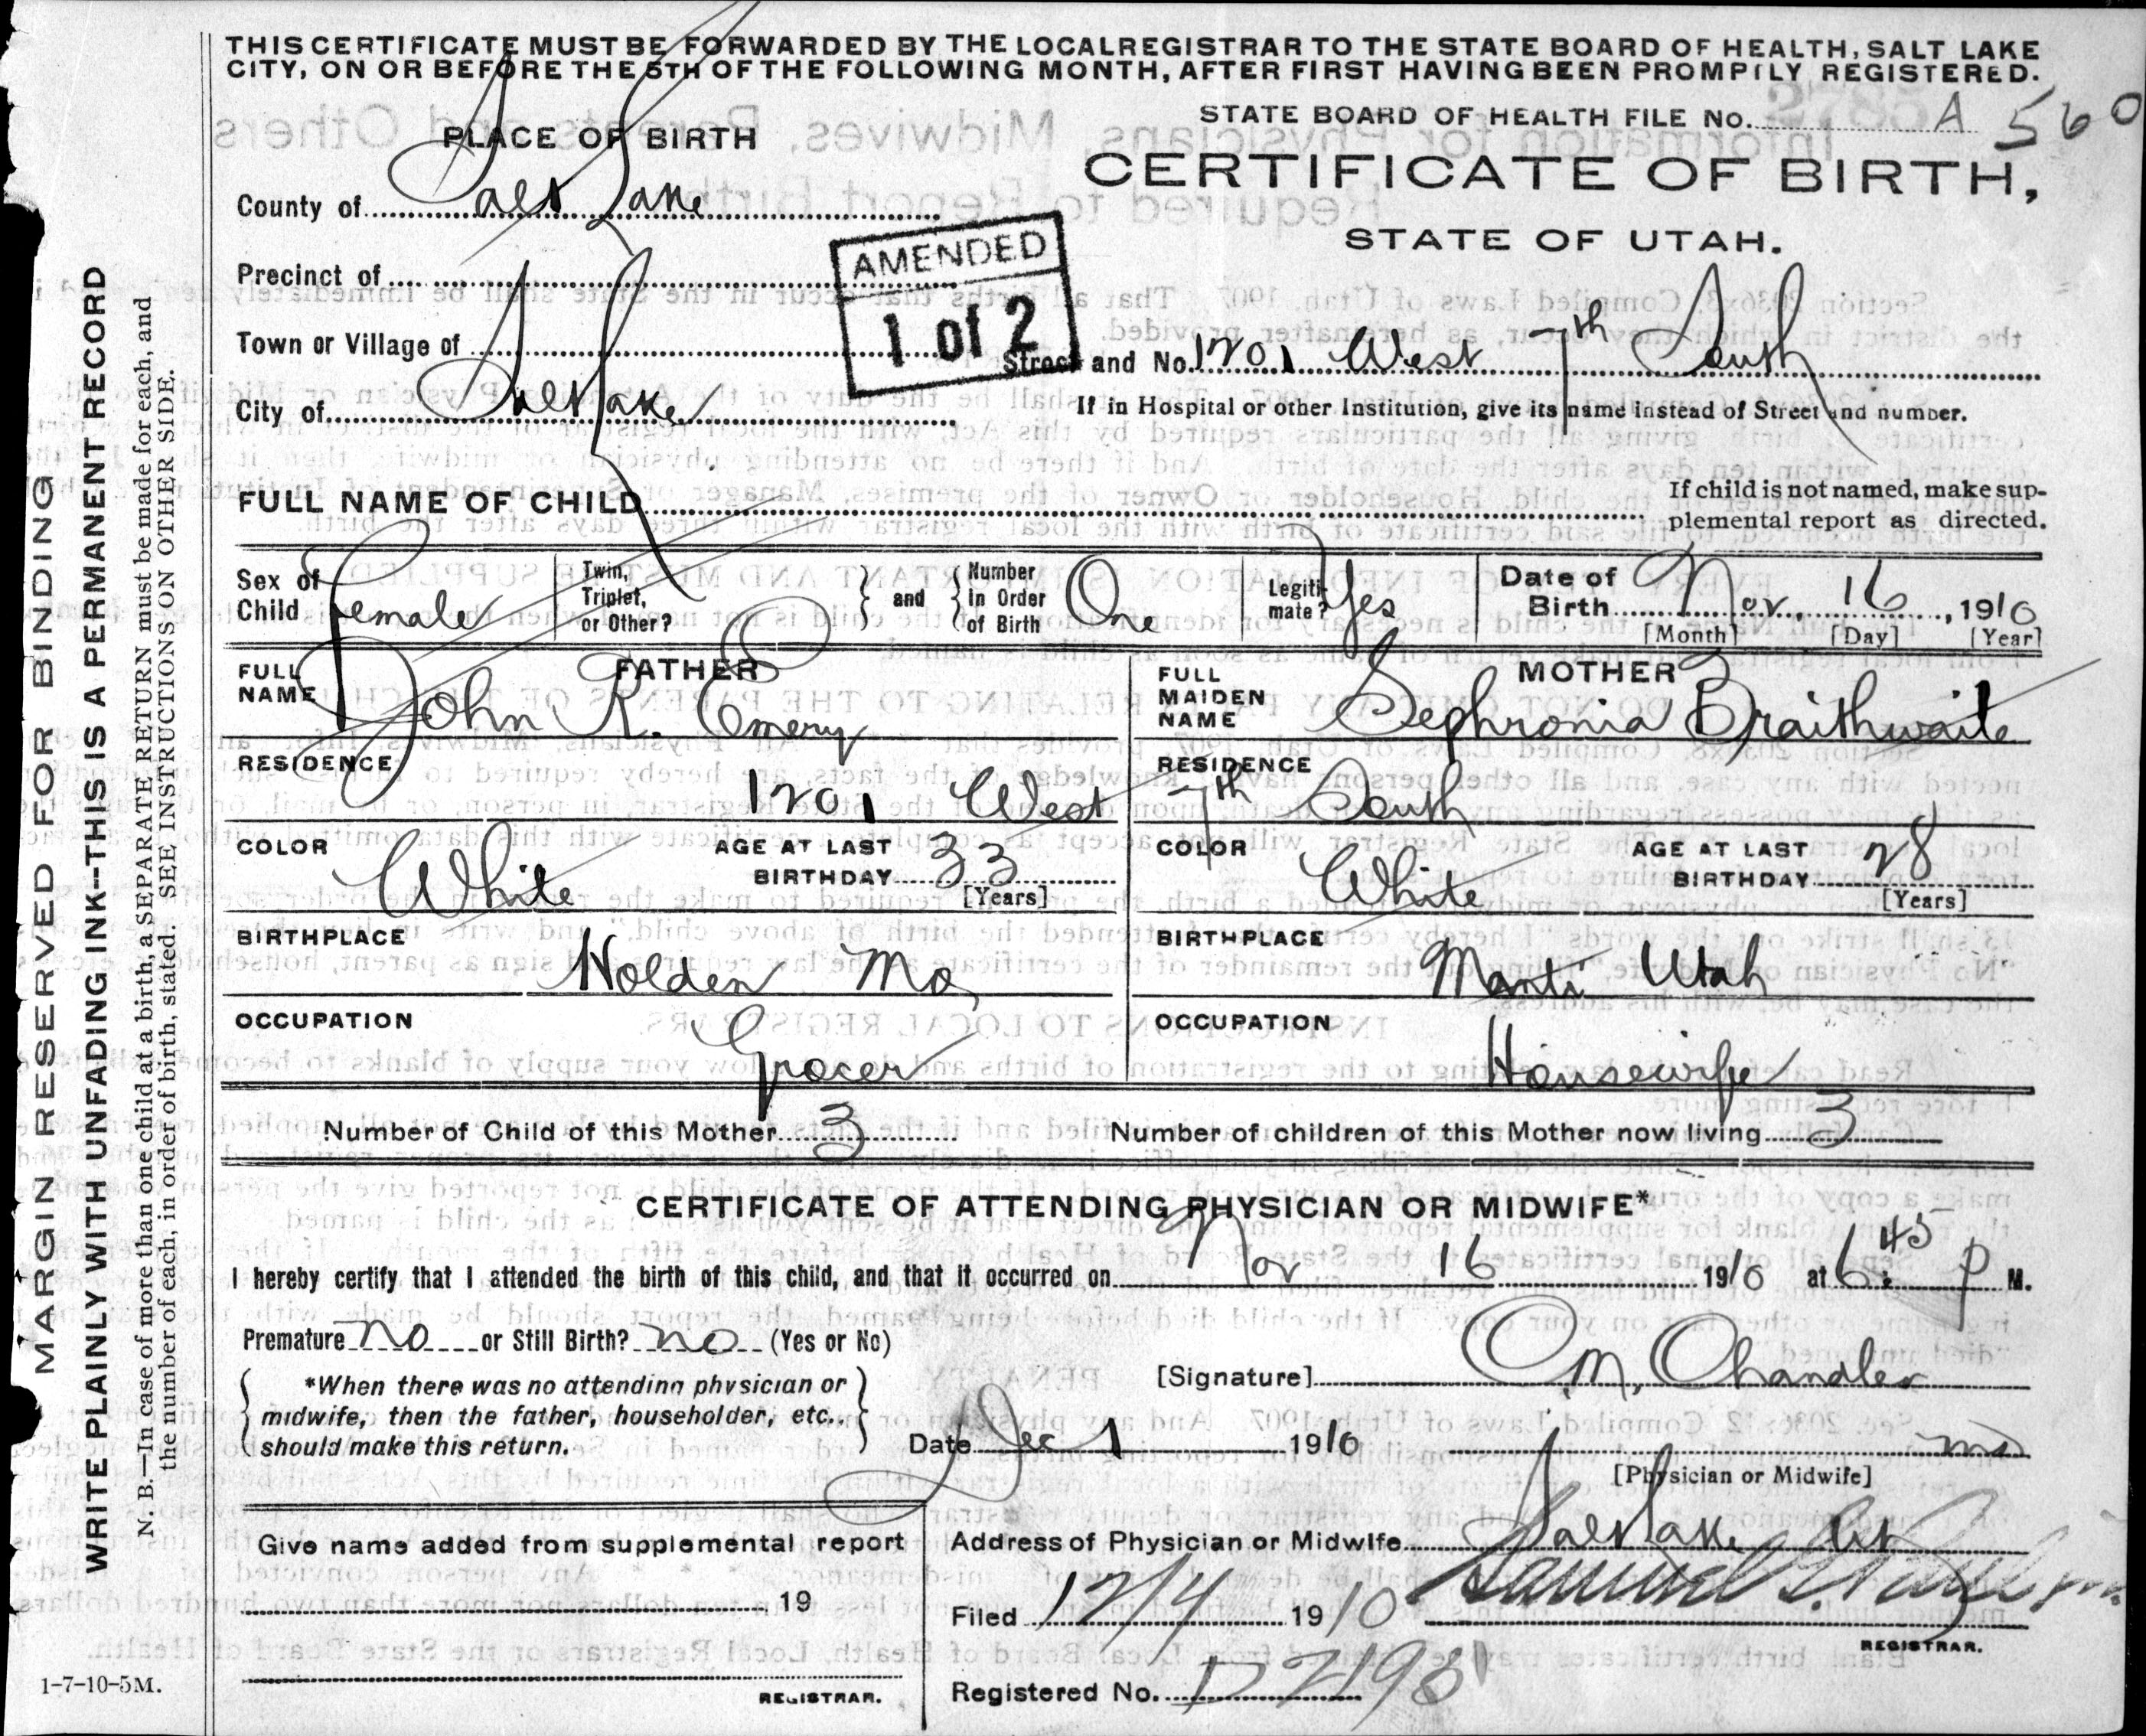 THIS CERTIFICATE MUST BE FORWARDED BY THE LOCAL REGISTRAR TO THE STATE BOARD OF HEALTH, SALT LAKE
CITY, ON OR BEFORE THE 5TH OF THE FOLLOWING MONTH, AFTER FIRST HAVING BEEN PROMPTLY REGISTERED.
STATE BOARD OF HEALTH FILE No. A 560
PLACE OF BIRTH
CERTIFICATE OF BIRTH,
STATE OF UTAH.
County of Salt Lake
Precinct of
AMENDED
1 of 2
Town or Village of
Street and No. 1201 West 7th South
City of Salt Lake
If in Hospital or other Institution, give its name instead of Street and number.
FULL NAME OF CHILD
If child is not named, make sup-
plemental report as directed.
Sex of Child Female
Twin, Triplet, or Other?
and
Number in Order of Birth One
Legiti-mate? Yes
Date of Birth Nov. 16, 1910
[Month] [Day] [Year]
FATHER
FULL NAME John R. Emery
MOTHER
FULL MAIDEN NAME Sephronia Braithwaite
RESIDENCE 1201 West
RESIDENCE 7th South
COLOR White
AGE AT LAST BIRTHDAY 33
[Years]
COLOR White
AGE AT LAST BIRTHDAY 28
[Years]
BIRTHPLACE Holden Mo,
BIRTHPLACE Manti Utah
OCCUPATION Grocer
OCCUPATION Housewife
Number of Child of this Mother 3
Number of children of this Mother now living 3
CERTIFICATE OF ATTENDING PHYSICIAN OR MIDWIFE*
I hereby certify that I attended the birth of this child, and that it occurred on Nov 16 1910 at 6:45 P M.
Premature no or Still Birth? no (Yes or No)
*When there was no attending physician or
midwife, then the father, householder, etc.,
should make this return.
[Signature] C M, Chandler
Date Dec 1 1910
MD
[Physician or Midwife]
Give name added from supplemental report
19
REGISTRAR.
Address of Physician or Midwife Salt Lake
Filed 12/4 1910 Samuel G.
REGISTRAR.
Registered No. D2198
MARGIN RESERVED FOR BINDING
WRITE PLAINLY WITH UNFADING INK--THIS IS A PERMANENT RECORD
N. B.—In case of more than one child at a birth, a SEPARATE RETURN must be made for each, and
the number of each, in order of birth, stated. SEE INSTRUCTIONS ON OTHER SIDE.
1-7-10-5M.